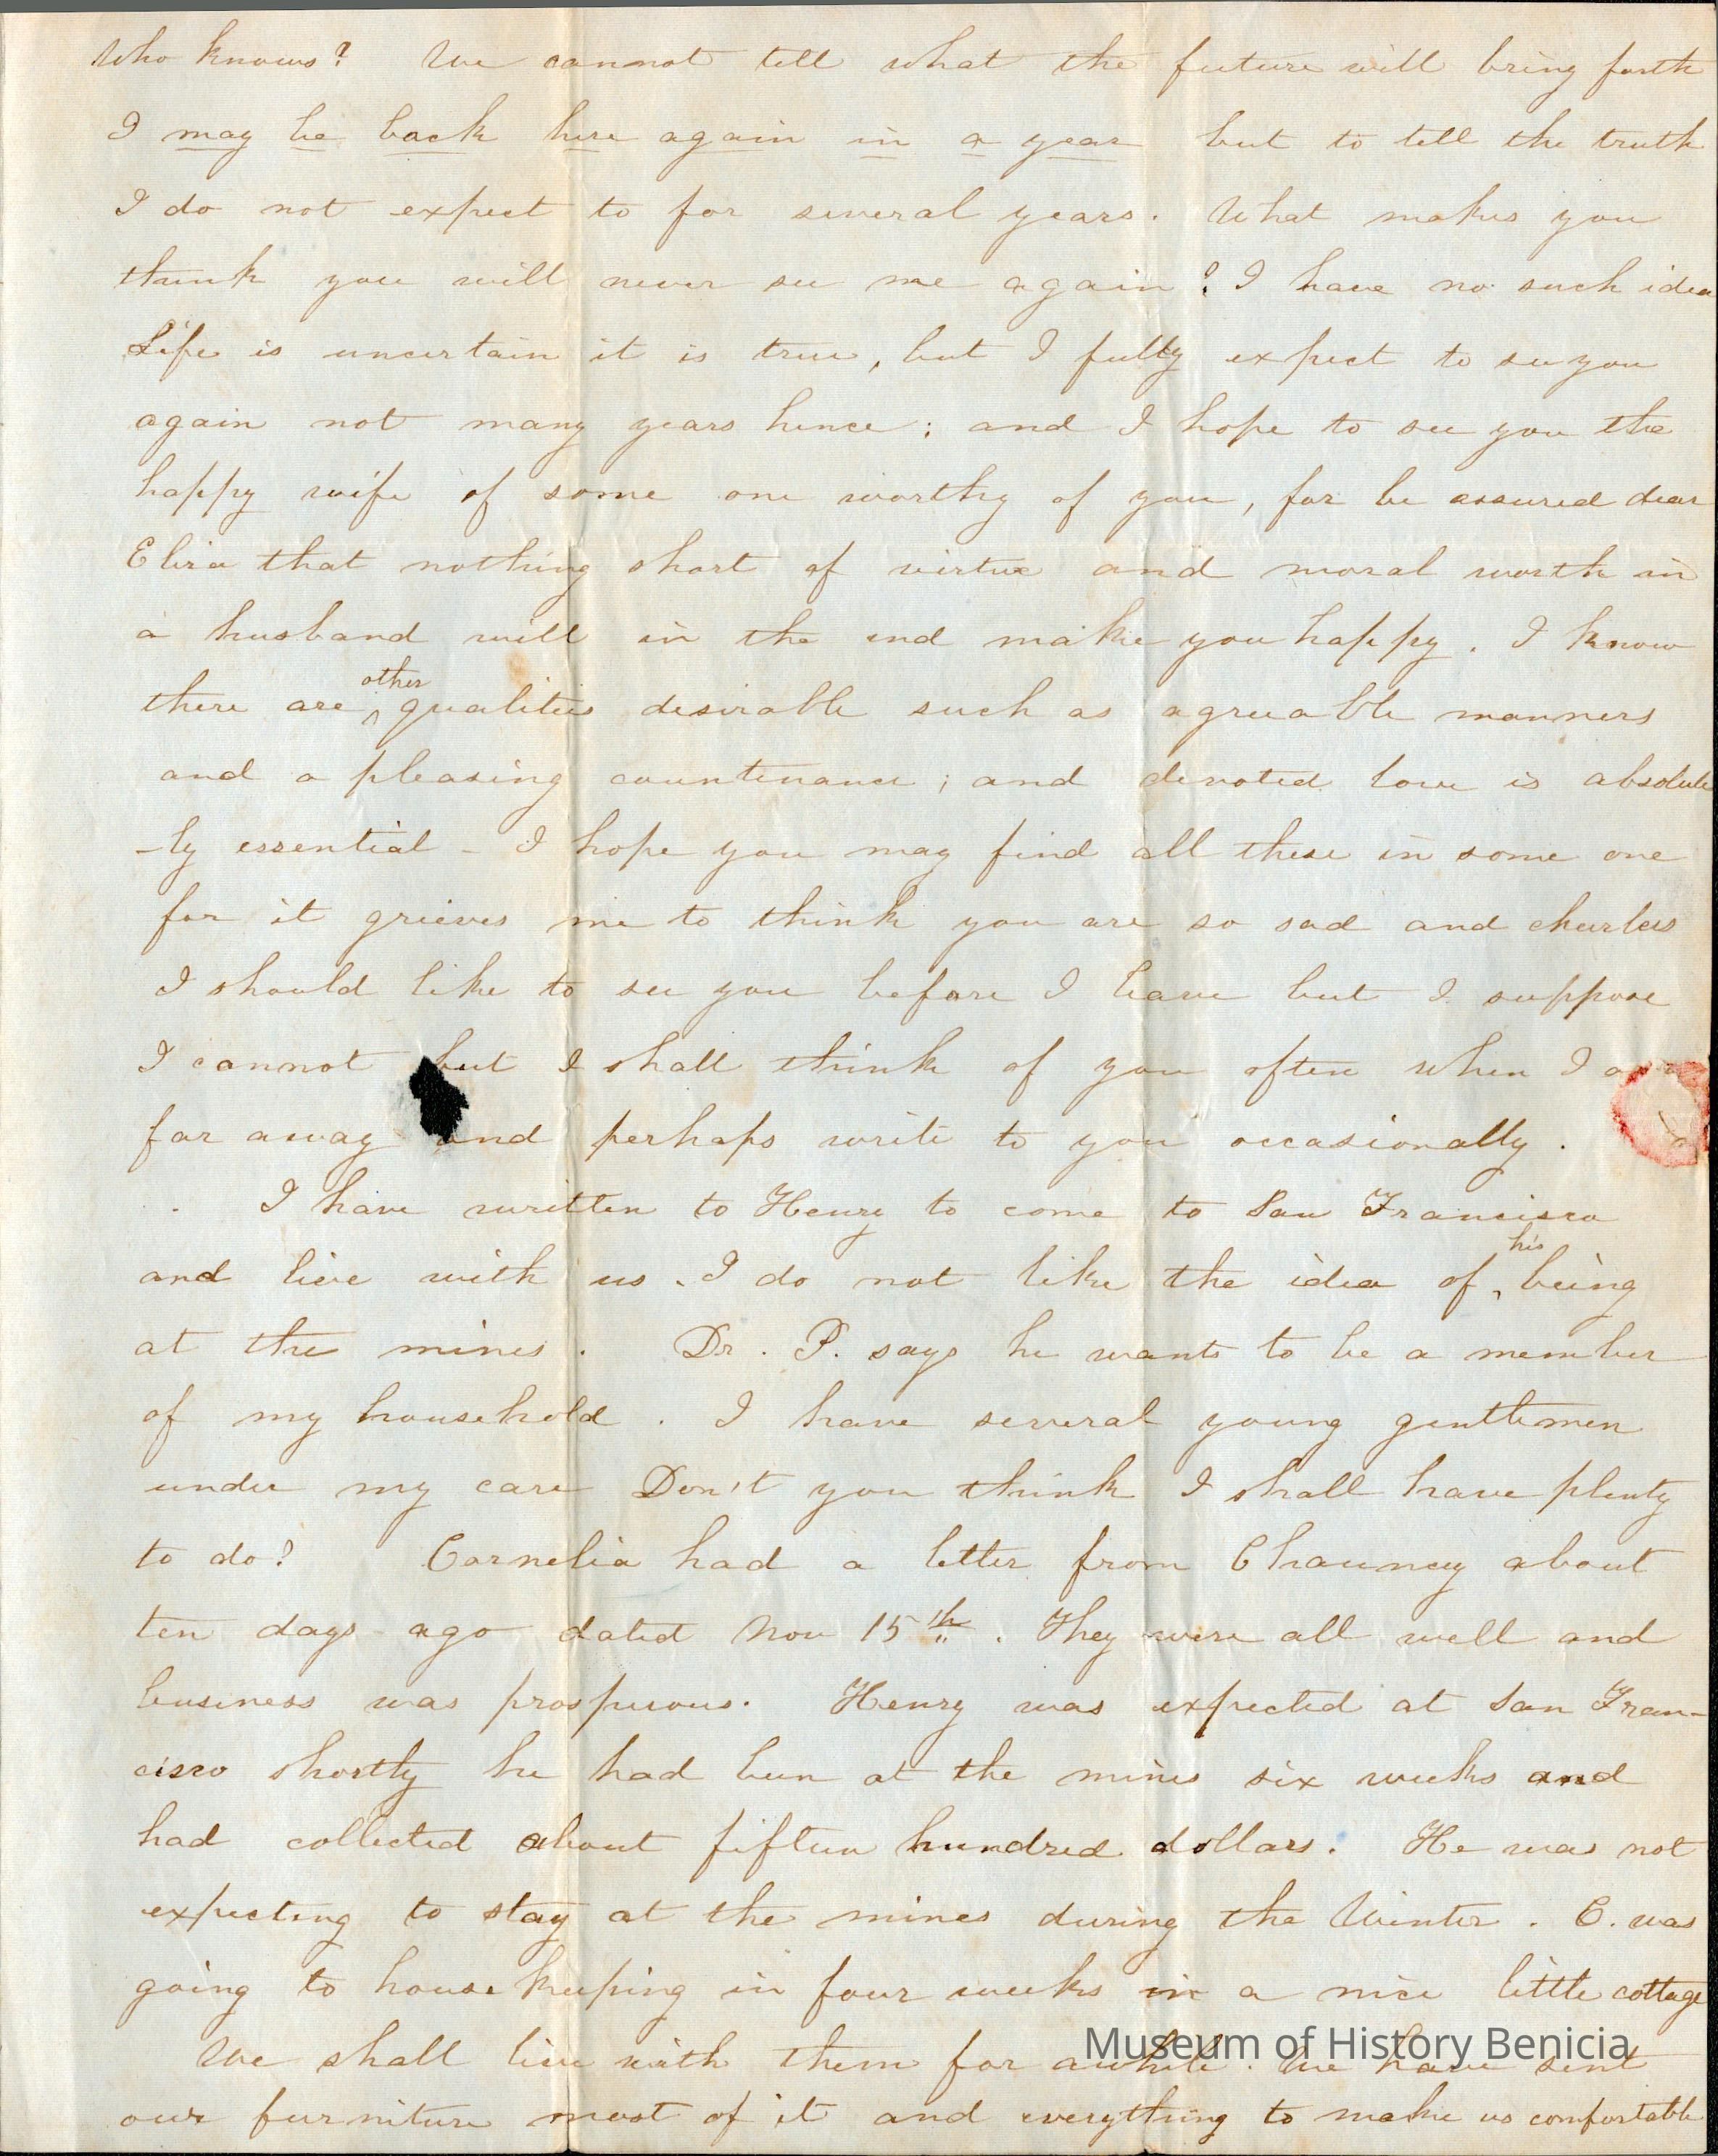 Who knows? We cannot tell what the future will bring forth
I may be back here again in a year but to tell the truth
I do not expect to for several years. What makes you
think you will never see me again? I have no such idea
Life is uncertain it is true, but I fully expect to see you
again not many years hence; and I hope to see you the
happy wife of some one worthy of you, for be assured dear
Eliza that nothing short of virtue and moral worth in
a husband will in the end make you happy. I know
other
there are ^ qualities desirable such as agreeable manners
and a pleasing countenance; and devoted love is absolute
-ly essential - I hope you may find all these in some one
for it grieves me to think you are so sad and cheerless
I should like to see you before I leave but I suppose
I cannot but I shall think of you often when I am
far away and perhaps write to you occasionally.
I have written to Henry to come to San Francisco
his
and live with us. I do not like the idea of ^ being
at the mines. Dr. P. says he wants to be a member
of my household. I have several young gentlemen
under my care Don't you think I shall have plenty
to do? Cornelia had a letter from Chauncey about
ten days ago dated Nov 15th. They were all well and
business was prosperous. Henry was expected at San Fran-
cisco shortly he had been at the mines six weeks and
had collected about fifteen hundred dollars. He was not
expecting to stay at the mines during the Winter. C. was
going to house keeping in four weeks in a nice little cottage
We shall live with them for awhile. We have sent
our furniture most of it and everything to make us comfortable
Museum of History Benicia